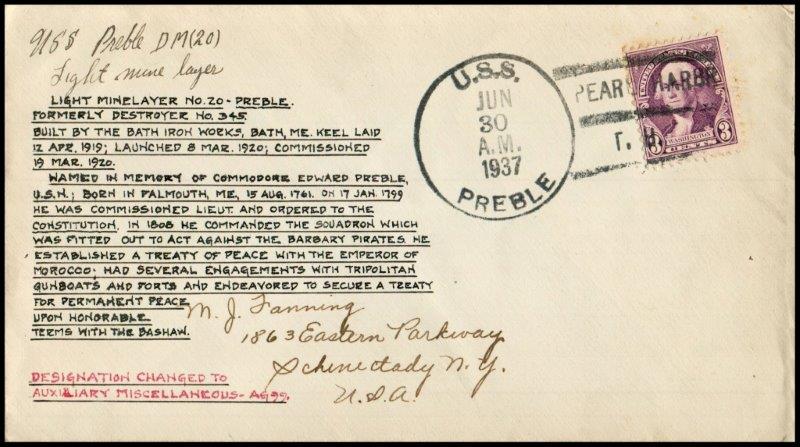 USS Preble DM(20)
Light mine layer
LIGHT MINELAYER NO. 20 - PREBLE.
FORMERLY DESTROYER NO. 345.
BUILT BY THE BATH IRON WORKS, BATH, ME. KEEL LAID
12 APR, 1919; LAUNCHED 8 MAR. 1920; COMMISSIONED
19 MAR. 1920.
NAMED IN MEMORY OF COMMODORE EDWARD PREBLE,
U.S.N.; BORN IN FALMOUTH, ME, 15 AUG. 1761. ON 17 JAN. 1799
HE WAS COMMISSIONED LIEUT. AND ORDERED TO THE
CONSTITUTION. IN 1803 HE COMMANDED THE SQUADRON WHICH
WAS FITTED OUT TO ACT AGAINST THE BARBARY PIRATES. HE
ESTABLISHED A TREATY OF PEACE WITH THE EMPEROR OF
MOROCCO; HAD SEVERAL ENGAGEMENTS WITH TRIPOLITAN
GUNBOATS AND FORTS AND ENDEAVORED TO SECURE A TREATY
FOR PERMANENT PEACE
UPON HONORABLE
TERMS WITH THE BASHAW.
DESIGNATION CHANGED TO
AUXILIARY MISCELLANEOUS - AG99.
M. J. Fanning
1863 Eastern Parkway
Schinectady N.Y.
U.S.A.
U.S.S.
JUN
30
A.M.
1937
PREBLE
PEARL HARBR
T. H.
UNITED STATES POSTAGE
3 WASHINGTON 3